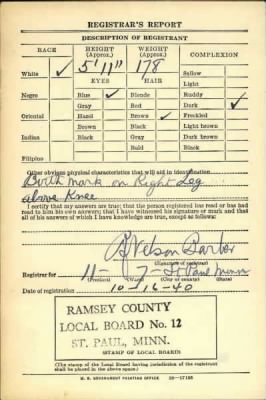 REGISTRAR'S REPORT
DESCRIPTION OF REGISTRANT
RACE HEIGHT (Approx.) WEIGHT (Approx.) COMPLEXION
White ✓ 5' 11" 178 Sallow
EYES HAIR Light
Negro Blue ✓ Blonde Ruddy
Gray Red Dark ✓
Oriental Hazel Brown ✓ Freckled
Brown Black Light brown
Indian Black Gray Dark brown
Bald Black
Filipino
Other obvious physical characteristics that will aid in identification
Birth mark on Right Leg
above Knee
I certify that my answers are true; that the person registered has read or has had
read to him his own answers; that I have witnessed his signature or mark and that
all of his answers of which I have knowledge are true, except as follows:
Nelson
(Signature of registrar)
Registrar for 11- 7- St Paul Minn
(Precinct) (Ward) (City or county)
Date of registration 10-16-40
RAMSEY COUNTY
LOCAL BOARD No. 12
ST. PAUL, MINN.
STAMP OF LOCAL BOARD
(The stamp of the Local Board having jurisdiction of the registrant
shall be placed in the above space.)
U. S. GOVERNMENT PRINTING OFFICE 16—17105